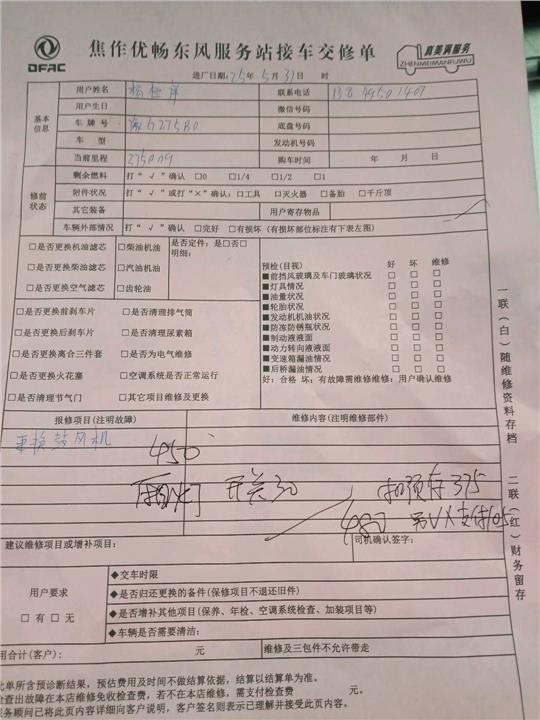 DFAC
焦作优畅东风服务站接车交修单
真美满服务
ZHENMEIMANFUWU
进厂日期:25年5月31日 时
基本信息
用户姓名 联系电话
用户生日 微信号码
车牌号 底盘号码
车型 发动机号码
当前里程 235009 购车时间 年 月 日
修前状态
剩余燃料 打“√”确认 □0 □1/4 □1/2 □1
附件状况 打“√”或打“×”确认:□工具 □灭火器 □备胎 □千斤顶
其它装备 用户寄存物品
车辆外部情况 打“√”确认 □完好 □有损坏(有损坏部位标注有下表左图)
□是否更换机油滤芯 □柴油机油
□是否更换柴油滤芯 □汽油机油
□是否更换空气滤芯 □齿轮油
是否定件:是□否□
明细:
□是否更换前刹车片 □是否清理排气筒
□是否更换后刹车片 □是否清理尿素箱
□是否更换离合三件套 □是否为电气维修
□是否更换火花塞 □空调系统是否正常运行
□是否清理节气门 □其它项目维修及更换
预检(目视) 好 坏 维修
■前挡风玻璃及车门玻璃状况 □ □ □
■灯具情况 □ □ □
■油量状况 □ □ □
■轮胎状况 □ □ □
■发动机机油状况 □ □ □
■防冻防锈瓶状况 □ □ □
■制动液液面 □ □ □
■动力转向液液面 □ □ □
■变速箱漏油情况 □ □ □
■后桥漏油情况 □ □ □
好:合格 坏:有故障需维修维修:用户确认维修
报修项目(注明故障) 维修内容(注明维修部件)
更换鼓风机 450
开关30 扣预存375
480 另VX支付105
建议维修项目或增补项目: 司机确认签字:
用户要求
□有 □无
◆交车时限
◆是否归还更换的备件(保修项目不退还旧件)
◆是否增补其他项目(保养、年检、空调系统检查、加装项目等)
◆车辆是否需要清洁:
用合计(客户): 元 维修及三包件不允许带走
此单所含预诊断结果,预估费用及时间不做结算依据,结算以结算单为准。
检查出故障在本店维修免收检查费,若不在本店维修,需支付检查费 元。
服务顾问已将此页内容详细向客户说明,客户签名则表示已理解并接受此页内容。
一联(白)随维修资料存档
二联(红)财务留存